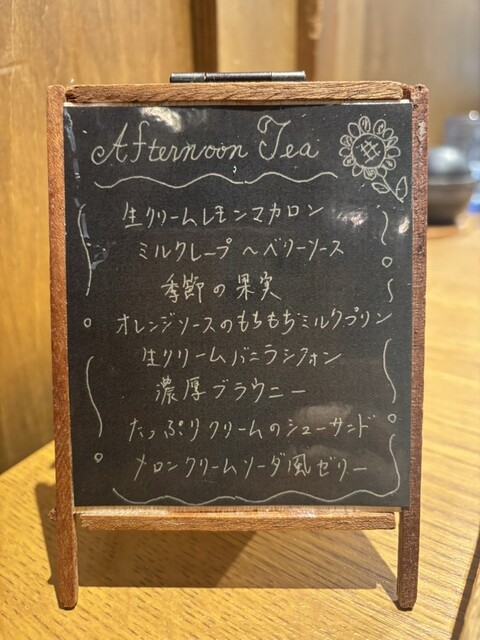 Afternoon Tea
生クリームレモンマカロン
ミルクレープ～ベリーソース
季節の果実
オレンジソースのもちもちミルクプリン
生クリームバニラシフォン
濃厚ブラウニー
たっぷりクリームのシューサンド
メロンクリームソーダ風ゼリー